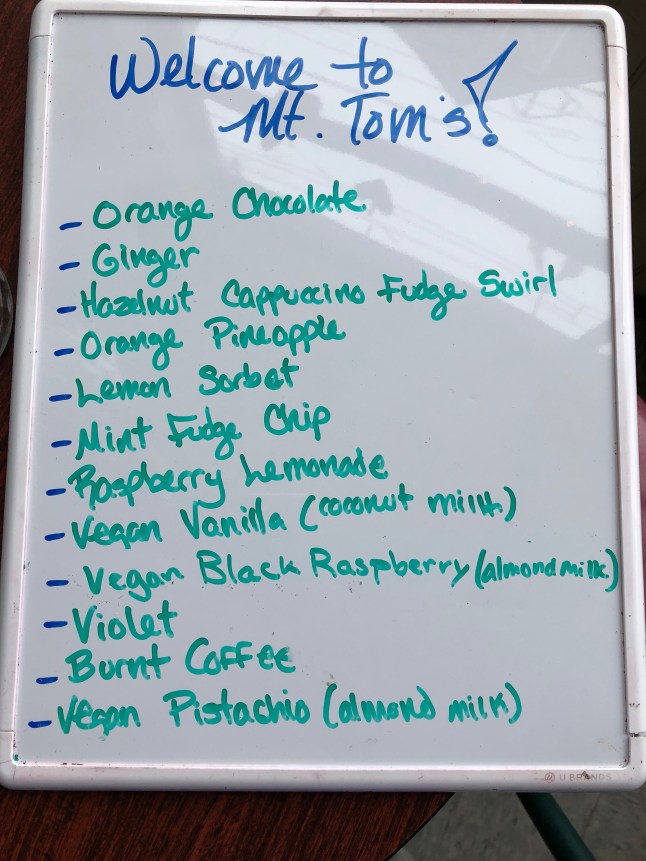 Welcome to
Mt. Tom's!
- Orange Chocolate
- Ginger
- Hazelnut Cappuccino Fudge Swirl
- Orange Pineapple
- Lemon Sorbet
- Mint Fudge Chip
- Raspberry Lemonade
- Vegan Vanilla (coconut milk)
- Vegan Black Raspberry (almond milk)
- Violet
- Burnt Coffee
- Vegan Pistachio (almond milk)
U BRANDS